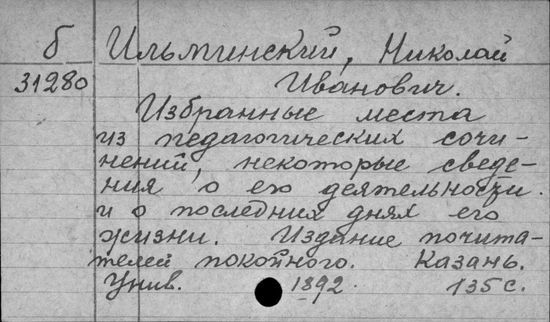 б Ильминский, Николай
31280 Иванович.
Избранные места
из педагогических сочи-
нений, некоторые сведе-
ния о его деятельности
и о последних днях его
жизни. Издание почита-
телей покойного. Казань.
Унив. 1892. 135 с.